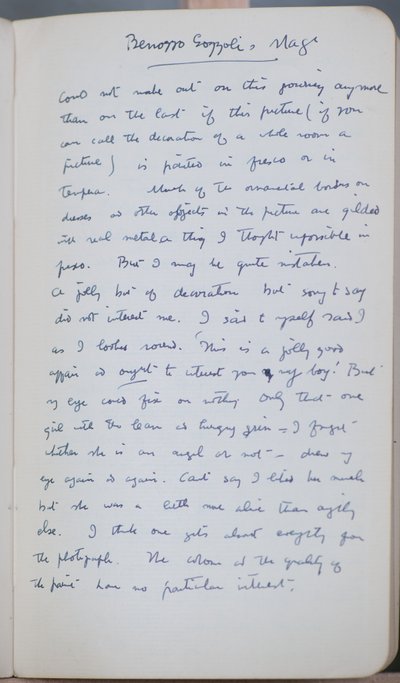 Benozzo Gozzoli's Magi
Could not make out on this journey any more
than on the last if this picture (if you
can call the decoration of a whole room a
picture) is painted in fresco or in
tempera. Much of the ornamental borders on
dresses and other objects in the picture are gilded
with real metal a thing I thought impossible in
fresco. But I may be quite mistaken.
A jolly bit of decoration but sorry to say
did not interest me. I said to myself said I
as I looked round. 'This is a jolly good
affair and ought to interest you my boy.' But
my eye could fix on nothing only that one
girl with the lean and hungry grin – I forget
whether she is an angel or not – drew my
eye again and again. Can't say I liked her much
but she was a little more alive than anything
else. I think one gets almost everything from
the photograph. The colour and the quality of
the paint have no particular interest.